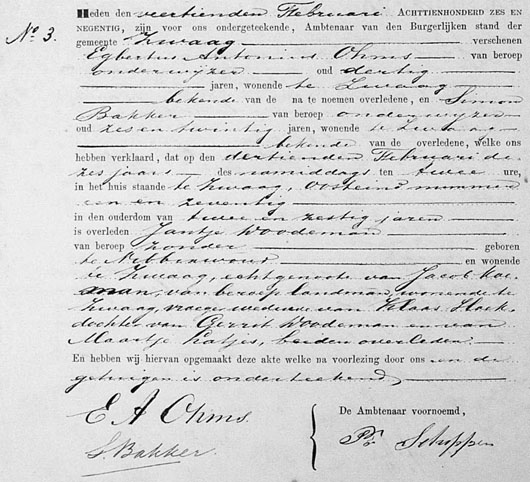 Nº 3.
Heden den veertienden Februari ACHTTIENHONDERD ZES EN
NEGENTIG, zijn voor ons ondergeteekende, Ambtenaar van den Burgerlijken stand der
gemeente Zwaag verschenen
Egbertus Antonius Ohms van beroep
onderwijzer oud dertig
jaren, wonende te Zwaag
bekende van de na te noemen overledene, en Simon
Bakker van beroep onderwijzer
oud zes en twintig jaren, wonende te Zwaag
bekende van de overledene, welke ons
hebben verklaard, dat op den dertienden Februari de-
zes jaars des namiddags ten twee ure,
in het huis staande te Zwaag, Oosteind nummer
een en zeventig
in den ouderdom van twee en zestig jaren
is overleden Jantje Woodeman
van beroep zonder geboren
te Nibbixwoud en wonende
te Zwaag, echtgenoote van Jacob
man, van beroep landman, wonende te
Zwaag, vroeger weduwe van Klaas
dochter van Gerrit Woodeman en van
Maartje Katjes, beiden overleden.
En hebben wij hiervan opgemaakt deze akte welke na voorlezing door ons en de
getuigen is onderteekend,
E A Ohms.
De Ambtenaar voornoemd,
S. Bakker.
Pr. Schuppen